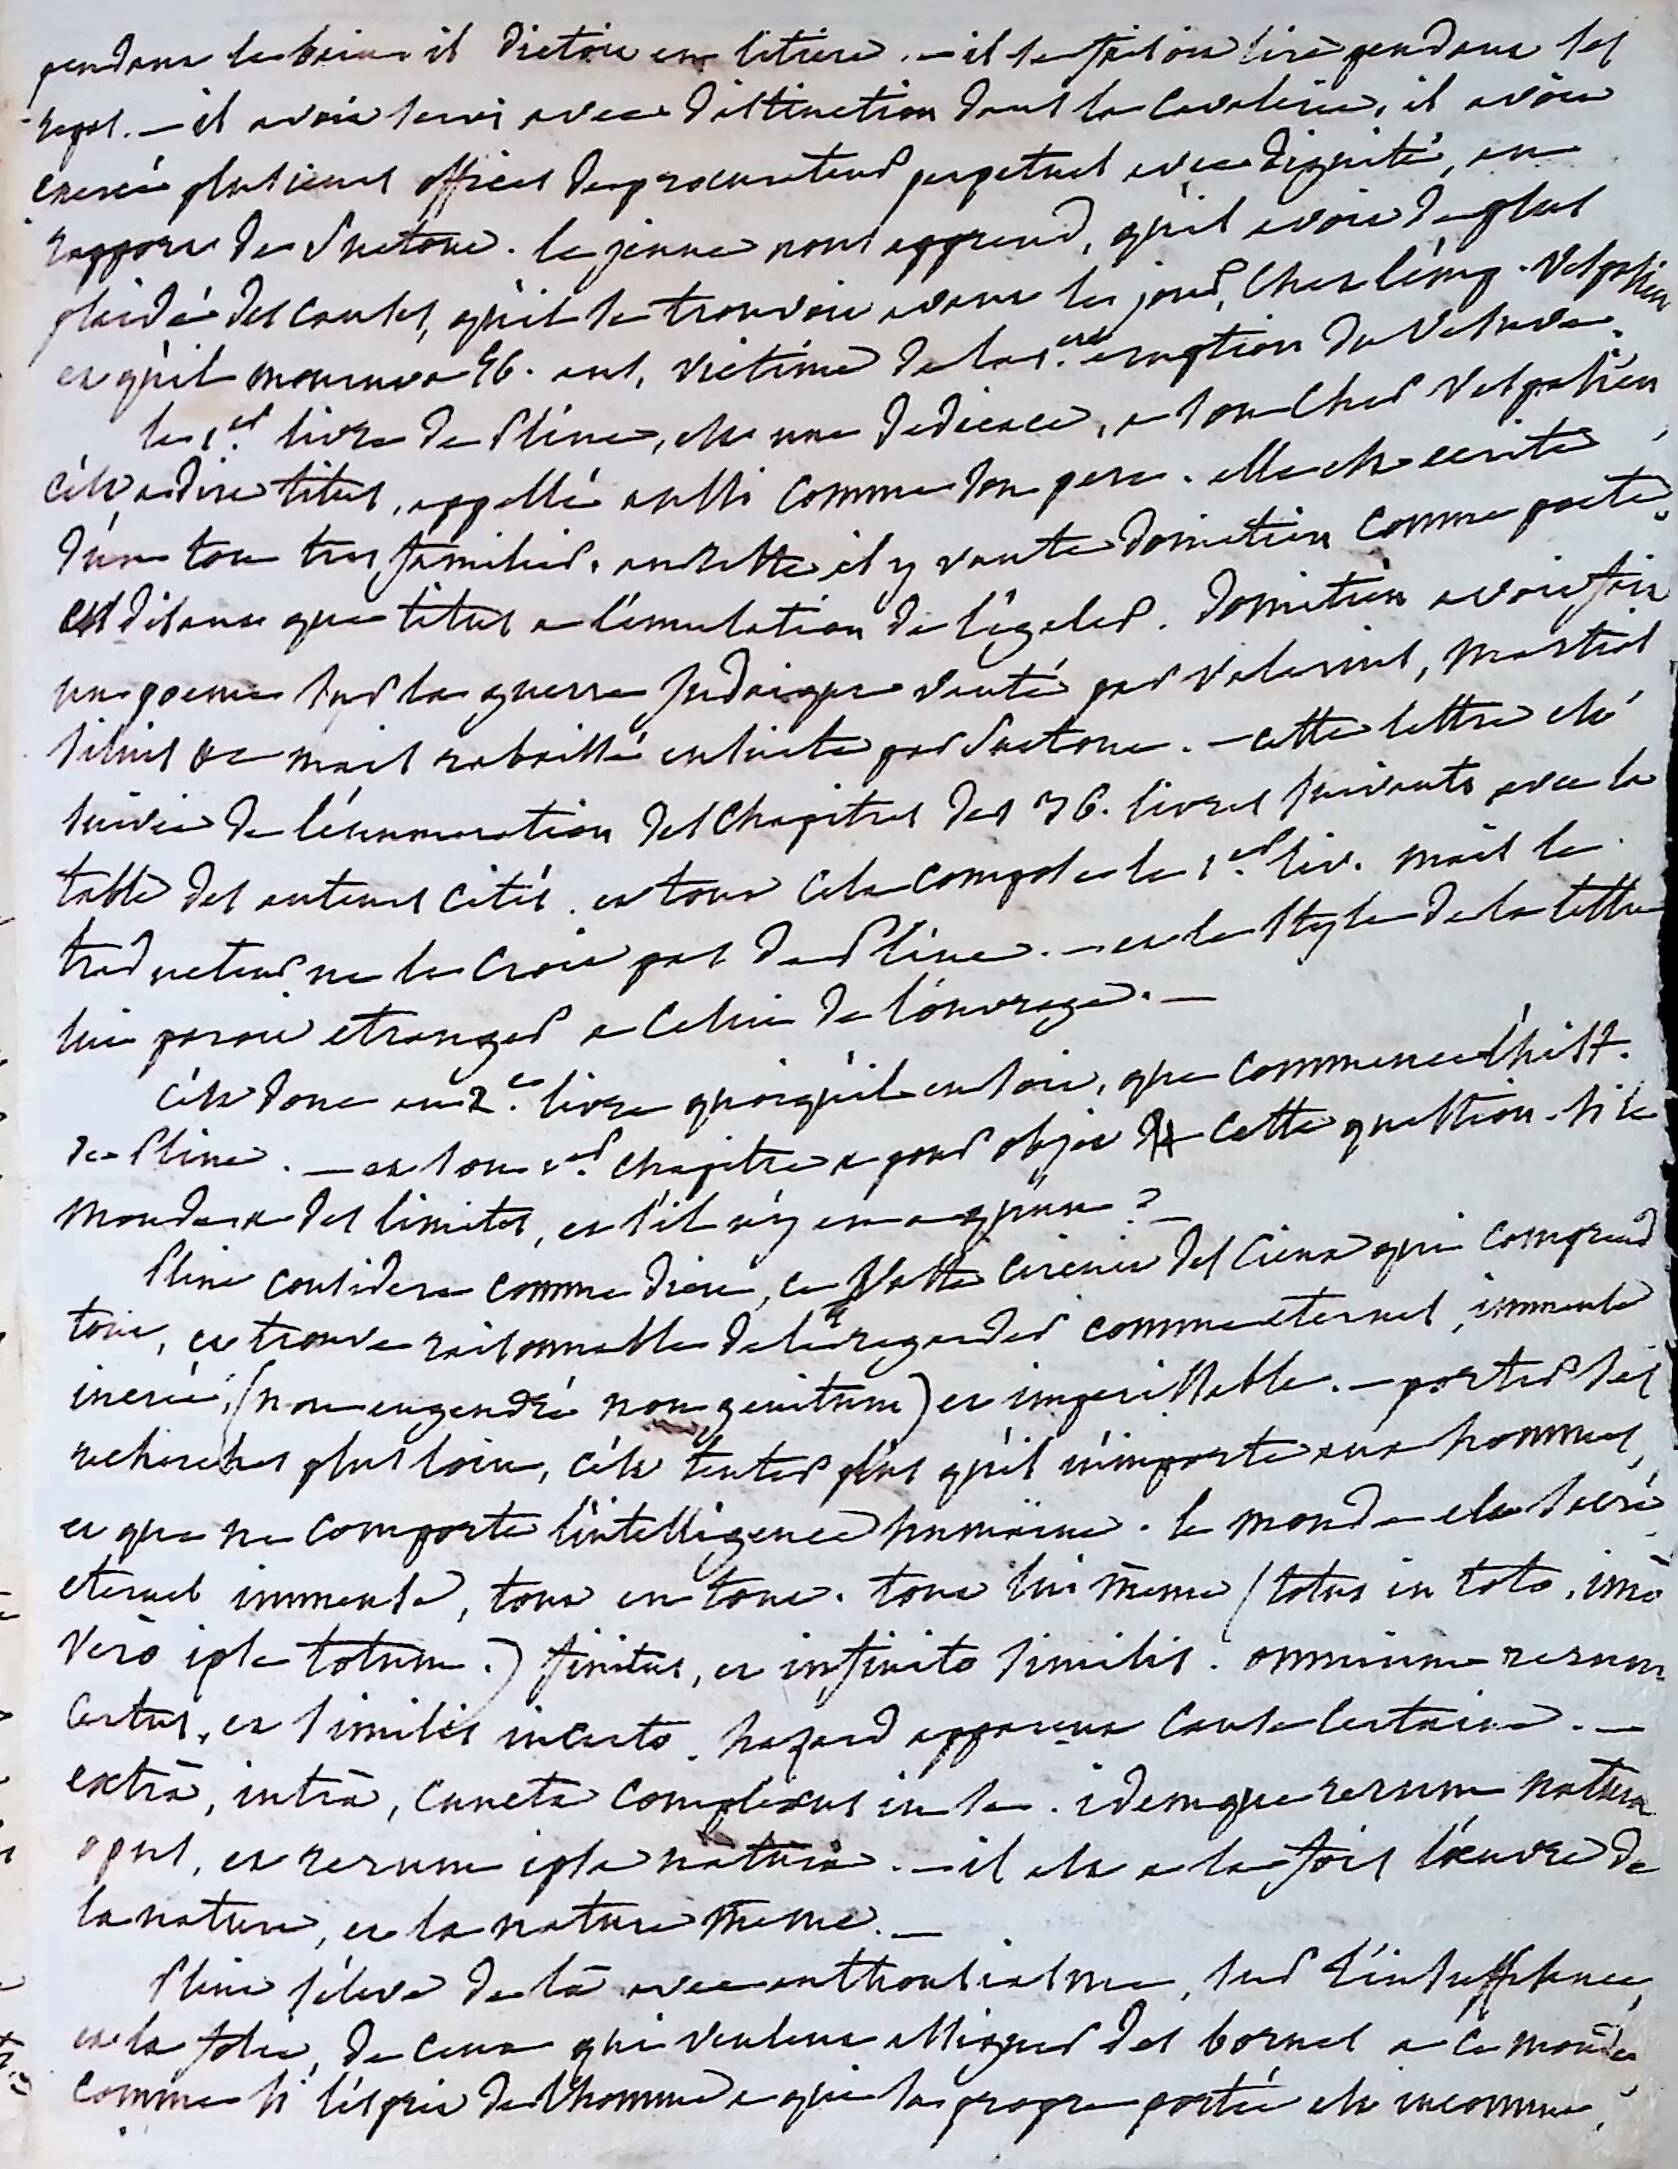 pendant le bain il dictoit en litiere. — il se faisoit lire pendant ses
repas. — il avoit servi avec distinction dans la cavalerie, il avoit
exercé plusieurs offices de procurateur perpetuel avec dignité, au
rapport de Suetone. le jeune nous apprend, qu'il avoit de plus
plaidé des causes, qu'il se trouvoit avant le jour, chez l'emp. Vespasien
et qu'il mourut a 56. ans, victime de la 1.ere eruption du Vesuve.
le 1.er livre de Pline, est une dedicace, a son cher Vespasien
c'est a dire titus, appellé aussi comme son pere. elle est ecrite
d'un ton tres familier. au reste il y vante domitien comme poete,
en disant que titus a l'emulation de l'egaler. Domitien avoit fait
un poeme sur la guerre Judaique vanté par Valerius, Martial
silius &c mais rabaissé ensuite par Suetone. — cette lettre est
suivie de l'enumeration des chapitres des 36. livres suivants avec la
table des auteurs cités. et tout cela compose le 1.er liv. mais le
traducteur ne le croit pas de Pline. — et le style de la lettre
lui paroit etranger a celui de l'ouvrage. —
c'est donc au 2.e livre quoiqu'il en soit, que commence l'hist.
de Pline. — et son 1.er chapitre a pour objet cette question. si le
monde a des limites, et s'il n'y en a qu'un ? —
Pline considere comme dieu, ce vaste circuit des Cieux qui comprend
tout, et trouve raisonnable de le regarder comme eternel, immense
increé, (non engendré non genitum) et imperissable. — porter ses
recherches plus loin, c'est tenter plus qu'il n'importe aux hommes,
et que ne comporte l'intelligence humaine. le monde est sacré
eternel immense, tout en tout. tout lui même (totus in toto, imò
verò ipse totum.) finitus, et infinito similis. omnium rerum
certus, et similis incerto. hazard apparent cause certaine. —
extrà, intrà, cuncta complexus in se. idemque rerum natura
opus, et rerum ipsa natura. — il est a la fois l'oeuvre de
la nature, et la nature même. —
Pline s'eleve de là avec enthousiasme, sur l'insuffisance,
et la folie, de ceux qui veulent assigner des bornes a ce monde
comme si l'esprit de l'homme a qui sa propre portée est inconnue,